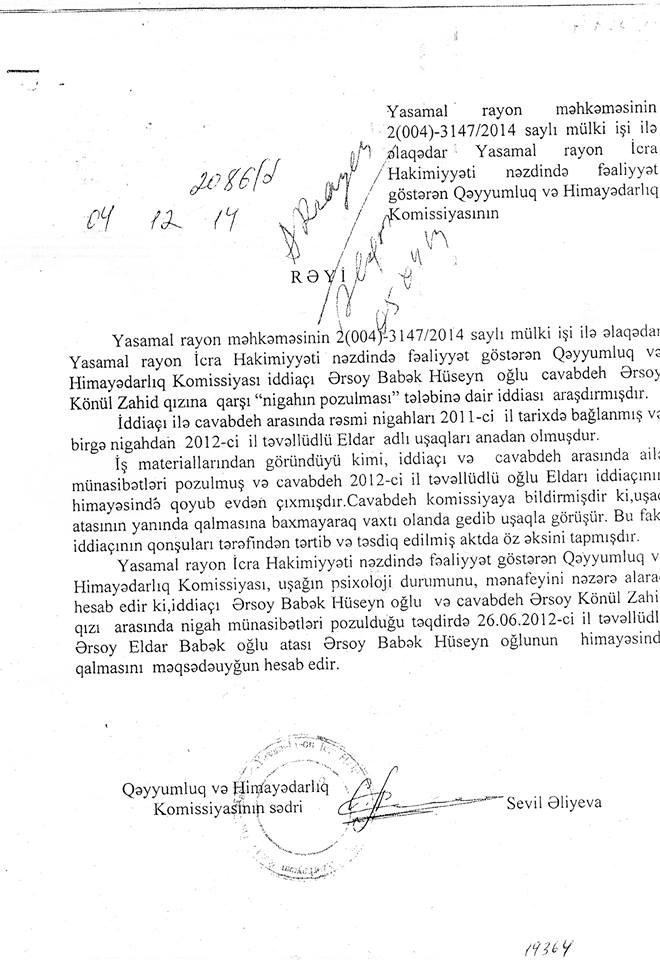 Yasamal rayon məhkəməsinin
2(004)-3147/2014 saylı mülki işi ilə
əlaqədar Yasamal rayon İcra
Hakimiyyəti nəzdində fəaliyyət
göstərən Qəyyumluq və Himayədarlıq
Komissiyasının
2086/2
04 12 14
RƏYİ
Yasamal rayon məhkəməsinin 2(004)-3147/2014 saylı mülki işi ilə əlaqədar
Yasamal rayon İcra Hakimiyyəti nəzdində fəaliyyət göstərən Qəyyumluq və
Himayədarlıq Komissiyası iddiaçı Ərsoy Babək Hüseyn oğlu cavabdeh Ərsoy
Könül Zahid qızına qarşı “nigahın pozulması” tələbinə dair iddiası araşdırmışdır.
İddiaçı ilə cavabdeh arasında rəsmi nigahları 2011-ci il tarixdə bağlanmış və
birgə nigahdan 2012-ci il təvəllüdlü Eldar adlı uşaqları anadan olmuşdur.
İş materiallarından göründüyü kimi, iddiaçı və cavabdeh arasında ailə
münasibətləri pozulmuş və cavabdeh 2012-ci il təvəllüdlü oğlu Eldarı iddiaçının
himayəsində qoyub evdən çıxmışdır.Cavabdeh komissiyaya bildirmişdir ki,uşaq
atasının yanında qalmasına baxmayaraq vaxtı olanda gedib uşaqla görüşür. Bu fak
iddiaçının qonşuları tərəfindən tərtib və təsdiq edilmiş aktda öz əksini tapmışdır.
Yasamal rayon İcra Hakimiyyəti nəzdində fəaliyyət göstərən Qəyyumluq v
Himayədarlıq Komissiyası, uşağın psixoloji durumunu, mənafeyini nəzərə alara
hesab edir ki,iddiaçı Ərsoy Babək Hüseyn oğlu və cavabdeh Ərsoy Könül Zahi
qızı arasında nigah münasibətləri pozulduğu təqdirdə 26.06.2012-ci il təvəllüdl
Ərsoy Eldar Babək oğlu atası Ərsoy Babək Hüseyn oğlunun himayəsind
qalmasını məqsədəuyğun hesab edir.
Qəyyumluq və Himayədarlıq
Komissiyasının sədri
Sevil Əliyeva
19364